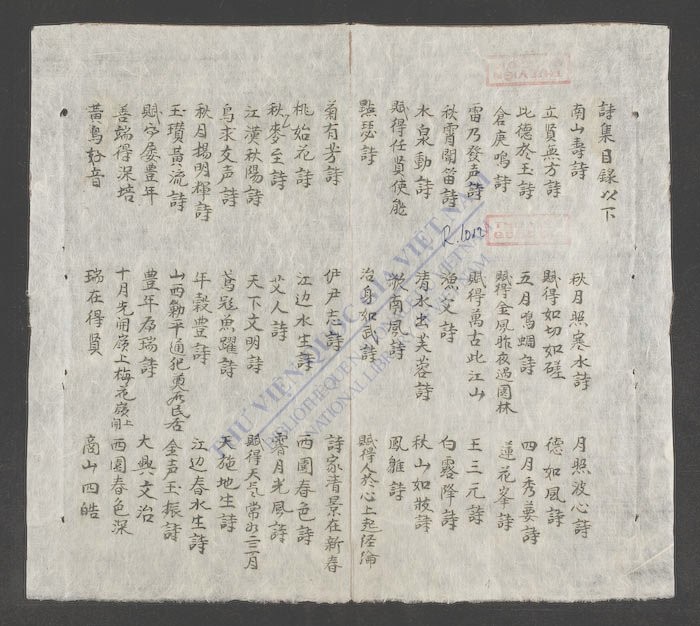 詩集目録以下
南山壽詩 秋月照寒水詩 月照波心詩
立賢無方詩 賦得如切如磋 德如風詩
比德於玉詩 五月鳴蜩詩 四月秀葽詩
倉庚鳴詩 賦得金風昨夜過園林 蓮花峯詩
雷乃發声詩 賦得萬古此江山 王三元詩
秋霄聞笛詩 漁父詩 白露降詩
水泉動詩 清水出芙蓉詩 秋山如粧詩
賦得任賢使能 南風詩 鳳雛詩
點瑟詩 治身如武詩 賦得人於心上起经綸
菊有芳詩 伊尹志詩 詩家清景在新春
桃始花詩 江边水生詩 西園春色詩
秋麥至詩 艾人詩 霽月光風詩
江漢秋陽詩 天下文明詩 賦得天气常如二三月
鳥求友声詩 鳶飛魚躍詩 天施地生詩
秋月揚明輝詩 年穀豊詩 江边春水生詩
玉瓚黄流詩 山西勦平逋犯奠民居 金声玉振詩
賦屡豊年 豊年為瑞詩 大興文治
善端得深培 十月先開嶺上梅花嶺上開 西園春色深
黄鳥好音 瑞在得賢 商山四皓
R.1012
THƯ VIỆN QUỐC GIA VIỆT NAM
NATIONAL LIBRARY OF VIETNAM